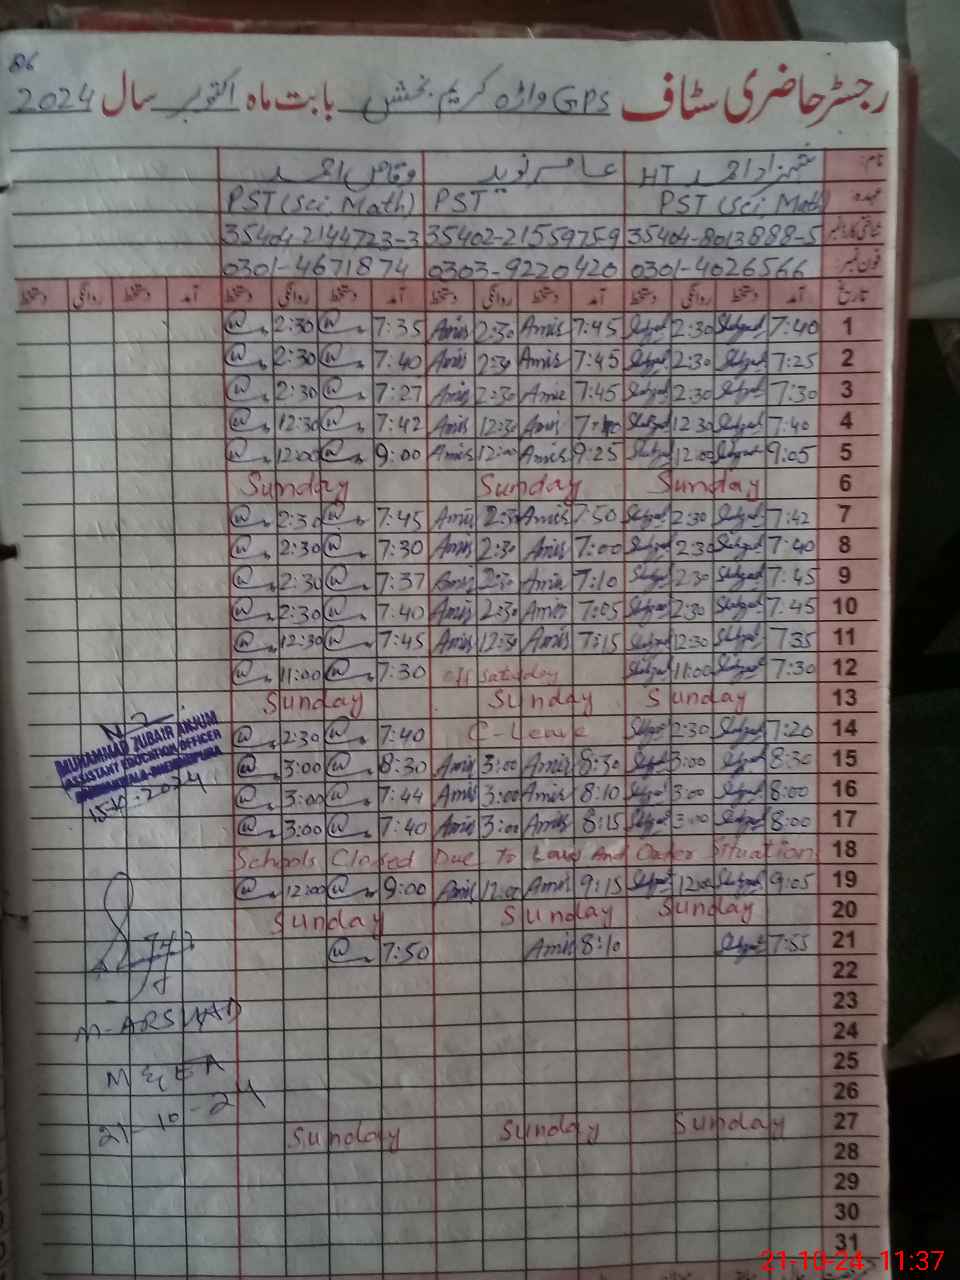 86
رجسٹر حاضری سٹاف GPS واڑہ کریم بخش بابت ماہ اکتوبر سال 2024
نام: شہزاد احمد HT عامر نوید وقاص احمد
عہدہ PST (Sci. Math) PST PST (Sci. Math)
شناختی کارڈ نمبر 35404-8013888-5 35402-2155975-9 35404-2144723-3
فون نمبر: 0301-4026566 0303-9220420 0301-4671874
تاریخ آمد دستخط روانگی دستخط آمد دستخط روانگی دستخط آمد دستخط روانگی دستخط آمد دستخط روانگی دستخط
1 7:40 Shahzad 2:30 Shahzad 7:45 Amir 2:30 Amir 7:35 2:30
2 7:25 Shahzad 2:30 Shahzad 7:45 Amir 2:30 Amir 7:40 2:30
3 7:30 Shahzad 2:30 Shahzad 7:45 Amir 2:30 Amir 7:27 2:30
4 7:40 Shahzad 12:30 Shahzad Amir 12:30 Amir 7:42 12:30
5 9:05 Shahzad 12:00 Shahzad 9:25 Amir 12:00 Amir 9:00 12:00
6 Sunday Sunday Sunday
7 7:42 Shahzad 2:30 Shahzad 7:50 Amir 2:30 Amir 7:45 2:30
8 7:40 Shahzad 2:30 Shahzad 7:00 Amir 2:30 Amir 7:30 2:30
9 7:45 Shahzad 2:30 Shahzad 7:10 Amir 2:30 Amir 7:37 2:30
10 7:45 Shahzad 2:30 Shahzad 7:05 Amir 2:30 Amir 7:40 2:30
11 7:35 Shahzad 12:30 Shahzad 7:15 Amir 12:30 Amir 7:45 12:30
12 7:30 Shahzad 11:00 Shahzad off Saturday 7:30 11:00
13 Sunday Sunday Sunday
14 7:20 Shahzad 2:30 Shahzad C-Leave 7:40 2:30
15 8:30 Shahzad 3:00 Shahzad 8:30 Amir 3:00 Amir 8:30 3:00
16 8:00 Shahzad 3:00 Shahzad 8:10 Amir 3:00 Amir 7:44 3:00
17 8:00 Shahzad 3:00 Shahzad 8:15 Amir 3:00 Amir 7:40 3:00
18 Schools Closed Due To Law And Order Situation
19 9:05 Shahzad 12:00 Shahzad 9:15 Amir 12:00 Amir 9:00 12:00
20 Sunday Sunday Sunday
21 7:55 Shahzad 8:10 Amir 7:50
22
23
24
25
26
27 Sunday Sunday Sunday
28
29
30
31
MUHAMMAD ZUBAIR ANJUM
ASSISTANT EDUCATION OFFICER
15-10-2024
M-ARSHAD
M & EA
21-10-24
21-10-24 11:37